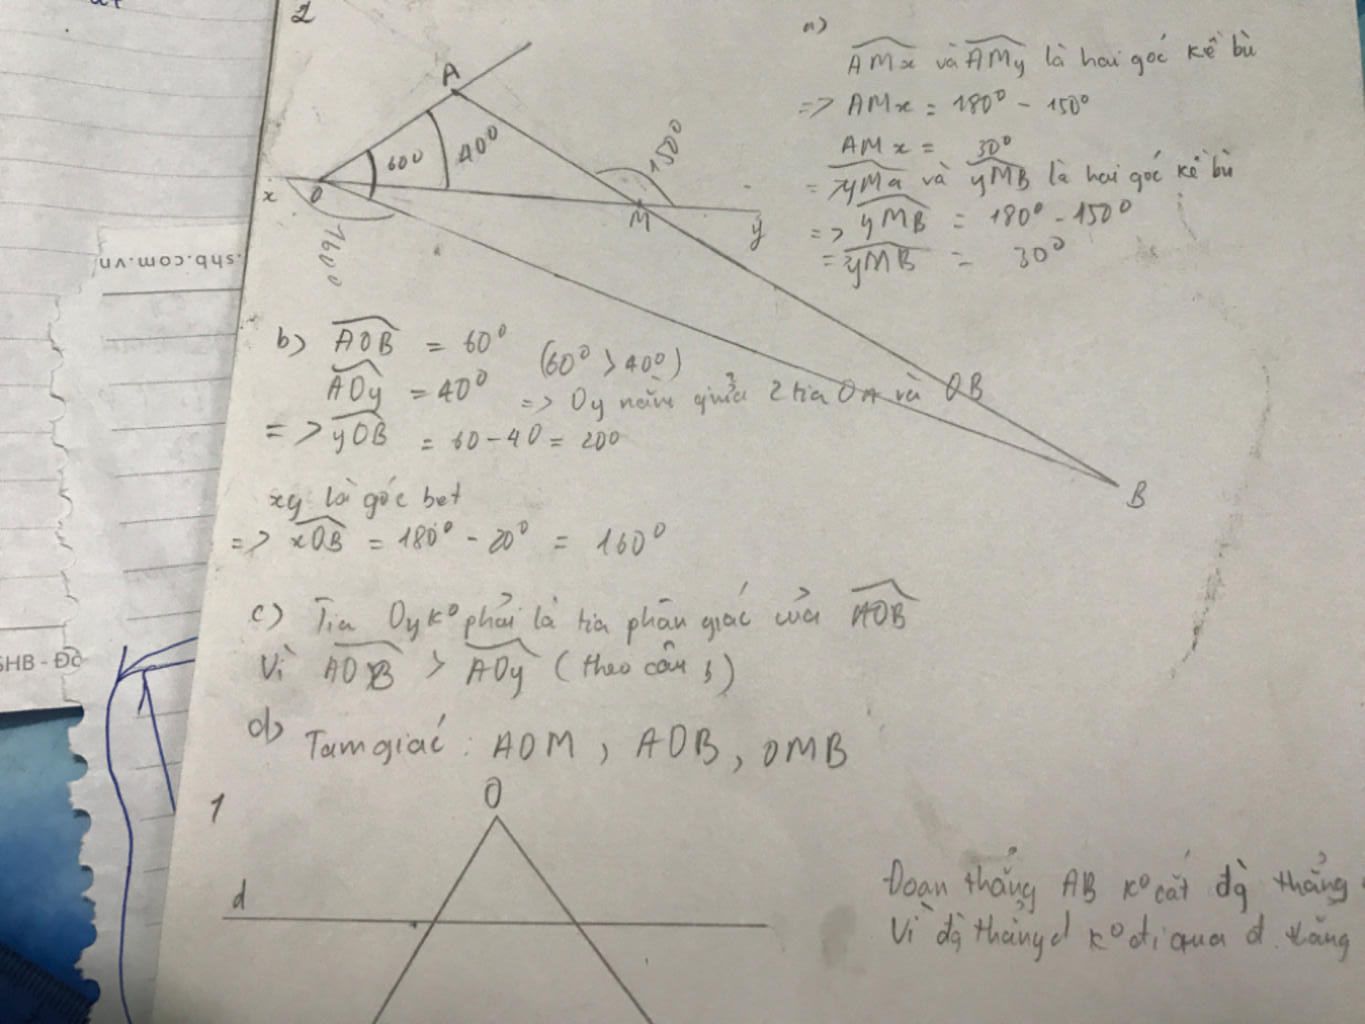 2
A
60⁰
40⁰
150⁰
x
O
M
y
160⁰
B
a)
AMx và AMy là hai góc kề bù
=> AMx = 180⁰ - 150⁰
AMx = 30⁰
= yMa và yMB là hai góc kề bù
=> yMB = 180⁰ - 150⁰
= yMB = 30⁰
b) AOB = 60⁰ (60⁰ > 40⁰)
AOy = 40⁰ => Oy nằm giữa 2 tia OA và OB
=> yOB = 60 - 40 = 20⁰
xy là góc bet
=> xOB = 180⁰ - 20⁰ = 160⁰
c) Tia Oy k⁰ phải là tia phân giác của AOB
Vì AOB > AOy (theo câu b)
d) Tam giác : AOM, AOB, OMB
1
O
d
Đoạn thẳng AB k⁰ cắt đg thẳng
Vì đg thẳng d k⁰ đi qua đ. thẳng
.shb.com.vn
SHB - Đò